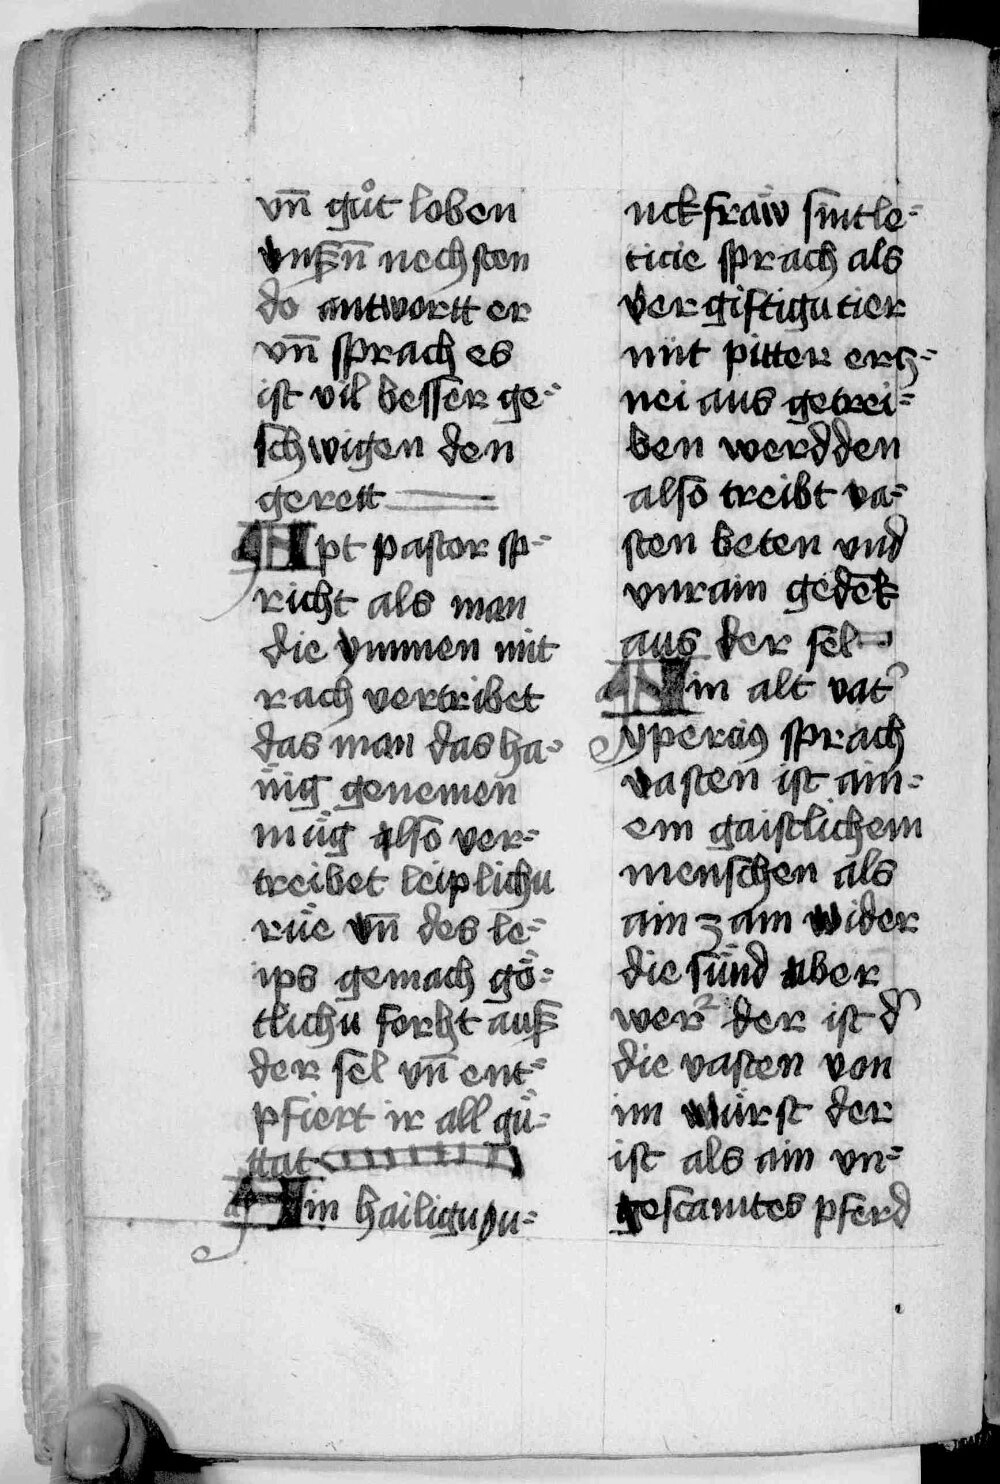 vn̄ gůt loben
vnßn̄ nechsten
do antwortt er
vn̄ sprach es
ist vil besser ge=
schwigen den
gerett
Apt pastor sp=
richt als man
die ymmen mit
rach vertribet
das man das ha=
nig genemen
müg also ver=
treibet leiplichu
rüe vn̄ des le=
ips gemach gö=
tlichu forht auß
der sel vn̄ ent=
pfiert ir all gü=
ttat
Ain hailigu ju=
nckfraw sintle=
ticie sprach als
vergiftigu tier
mit pitter ercz=
nei aus getrei=
ben werdden
also treibt va=
sten beten vnd
vnrain gedek̄
aus der sel=
Ain alt vat᾿
ypericꝰ sprach
vasten ist ain=
em gaistlichem
menschen als
ain zam wider
die sünd aber
wer der ist d᾿
die vasten von
im würst der
ist als ain vn=
gescamtes pferd